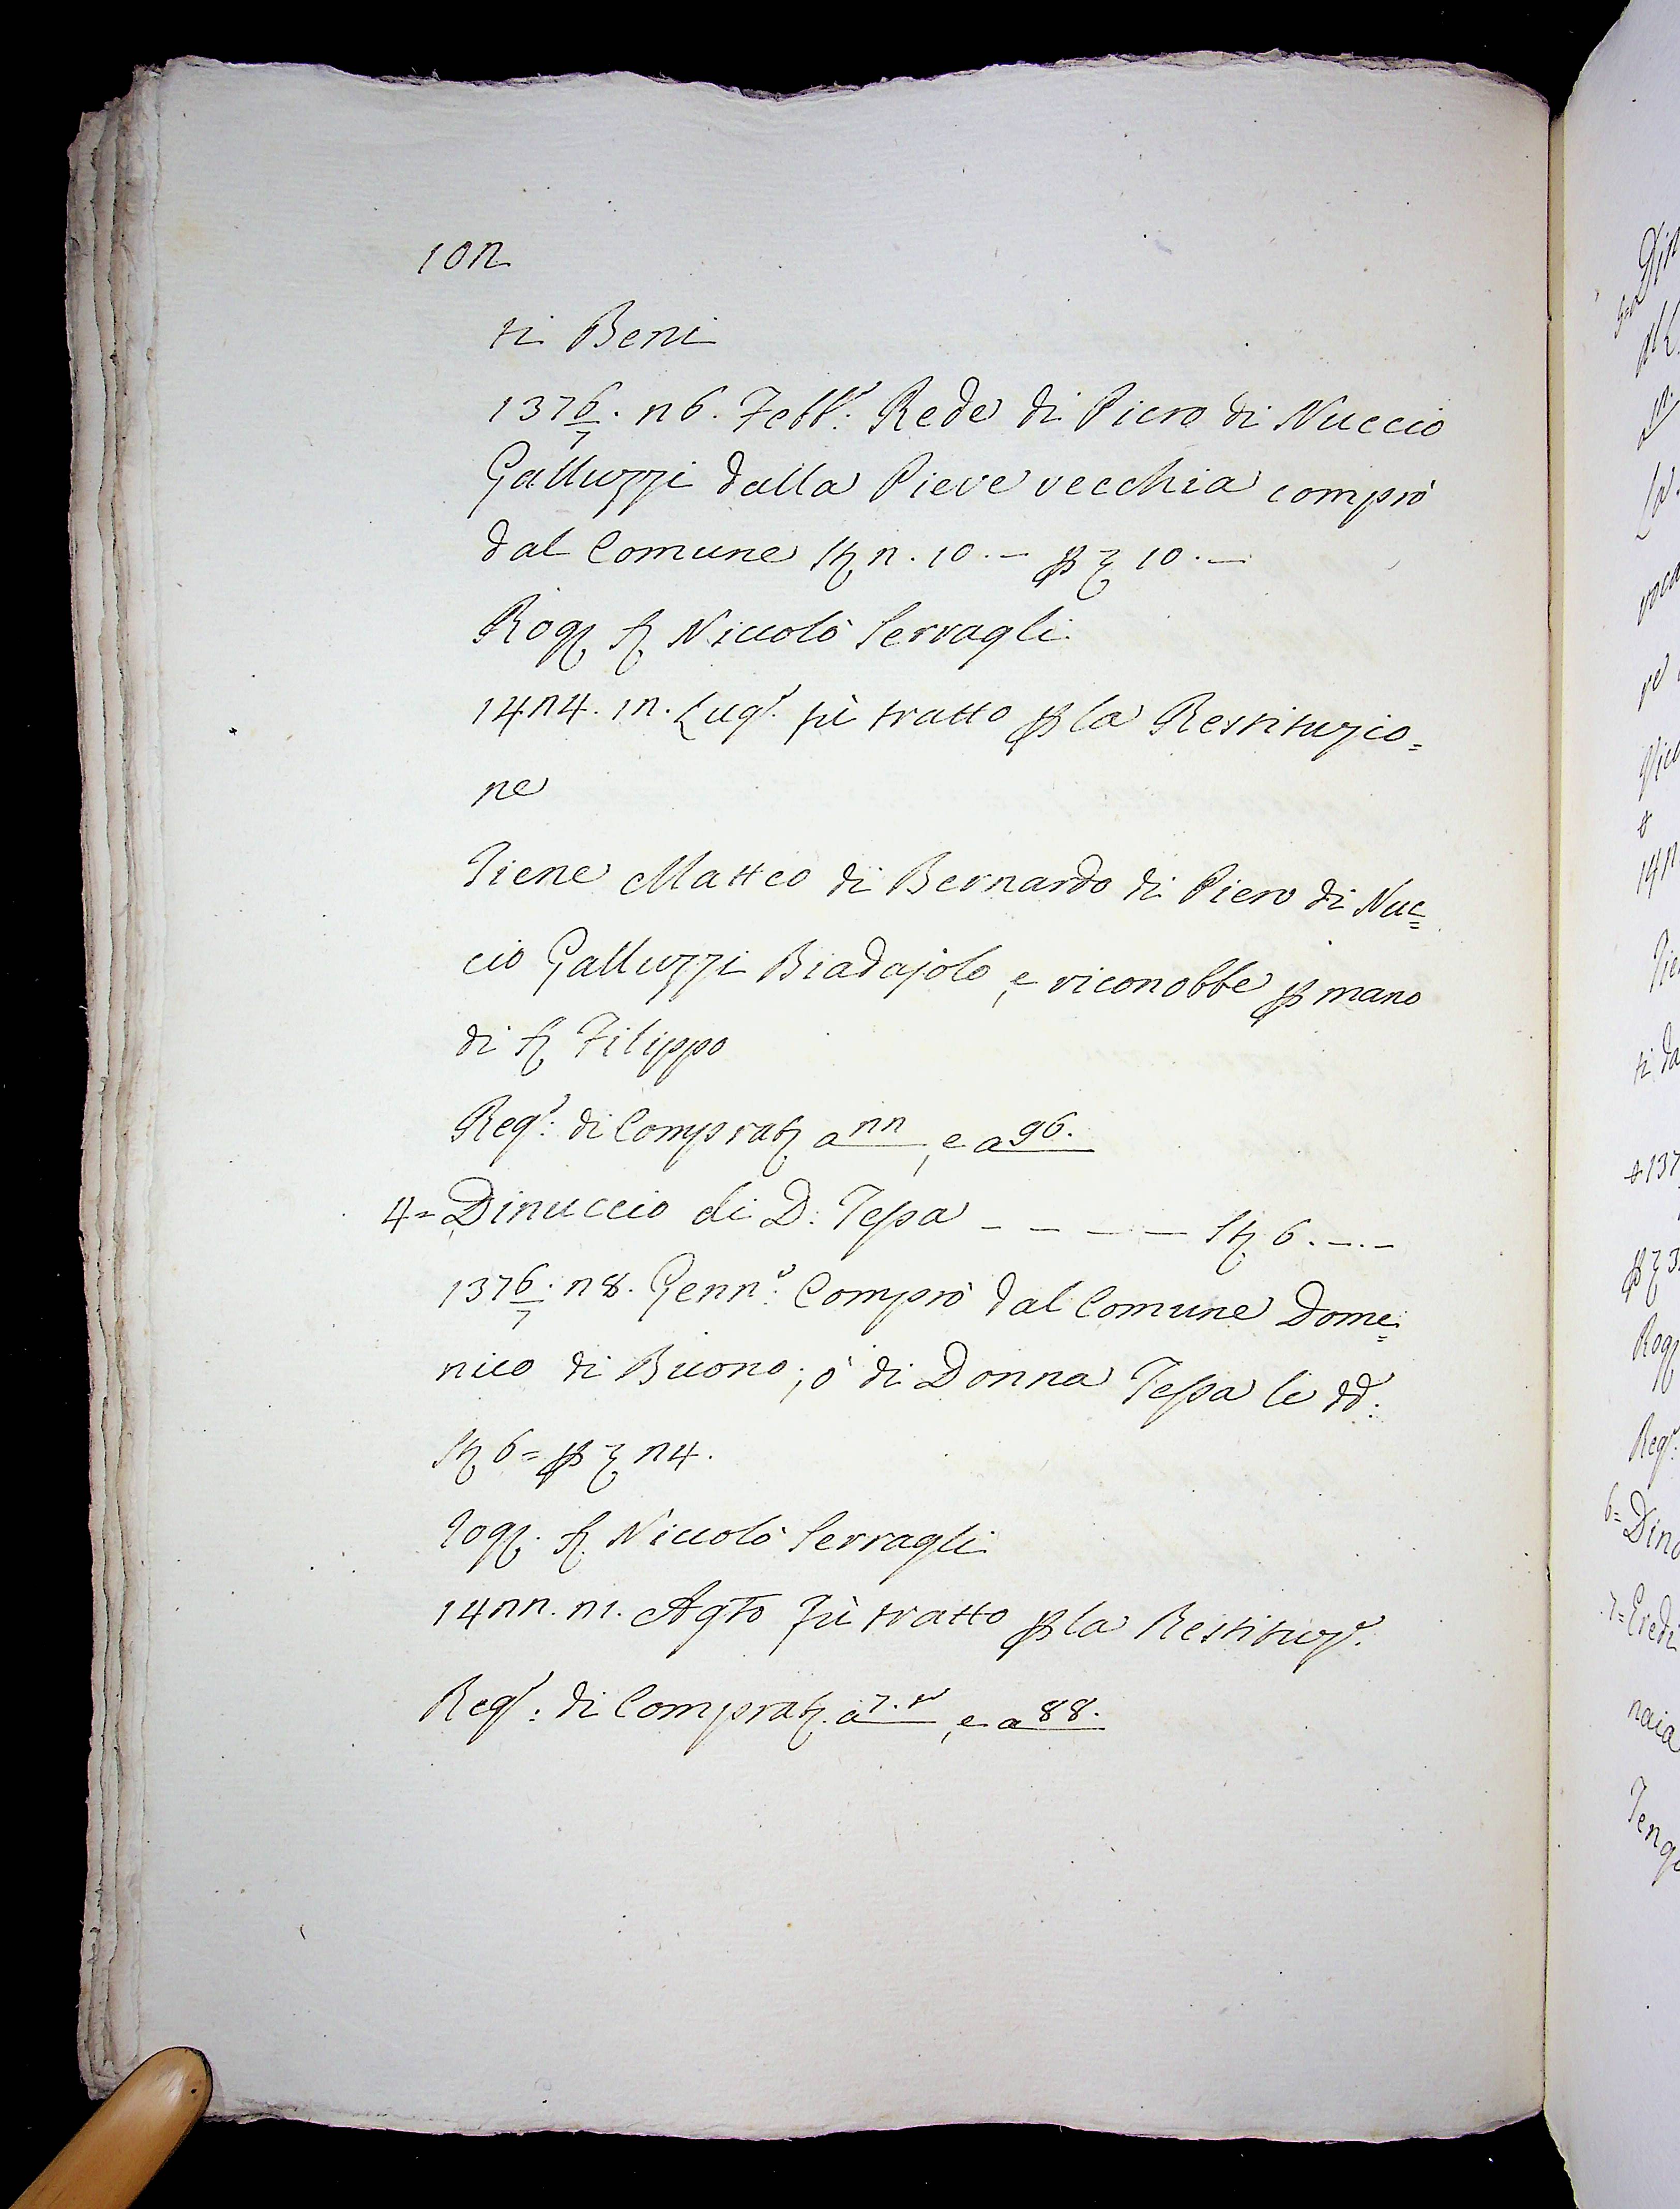 102
ti Beni
1376/7. 26. Febb.º Rede di Piero di Nuccio
Galluzzi dalla Pieve vecchia comprò
dal Comune St 2. 10. – p ƺ 10. –
Rog. S. Niccolò Serragli
1424. 12. Lug.º fù tratto p la Restituzio=
ne
Tiene Matteo di Bernardo di Piero di Nuc=
cio Galluzzi Biadajolo, e riconobbe p mano
di S. Filippo
Reg.º: di Comprat. a 22, e a 96.
4= Dinuccio di D: Tessa – – – – St 6. –.–
1376/7. 28. Genn.º: Comprò dal Comune Dome=
nico di Buono; ò di Donna Tessa le dd:
St 6= p ƺ 24.
Rog. S. Niccolò Serragli
1422. 21. Agto fù tratto p la Restituz.e
Reg.º: di Comprat. a 7.º, e a 88.